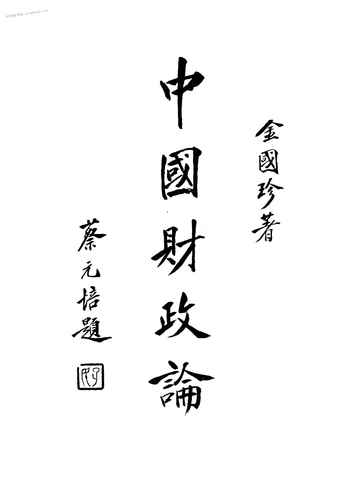 金國珍著
中國財政論
蔡元培題